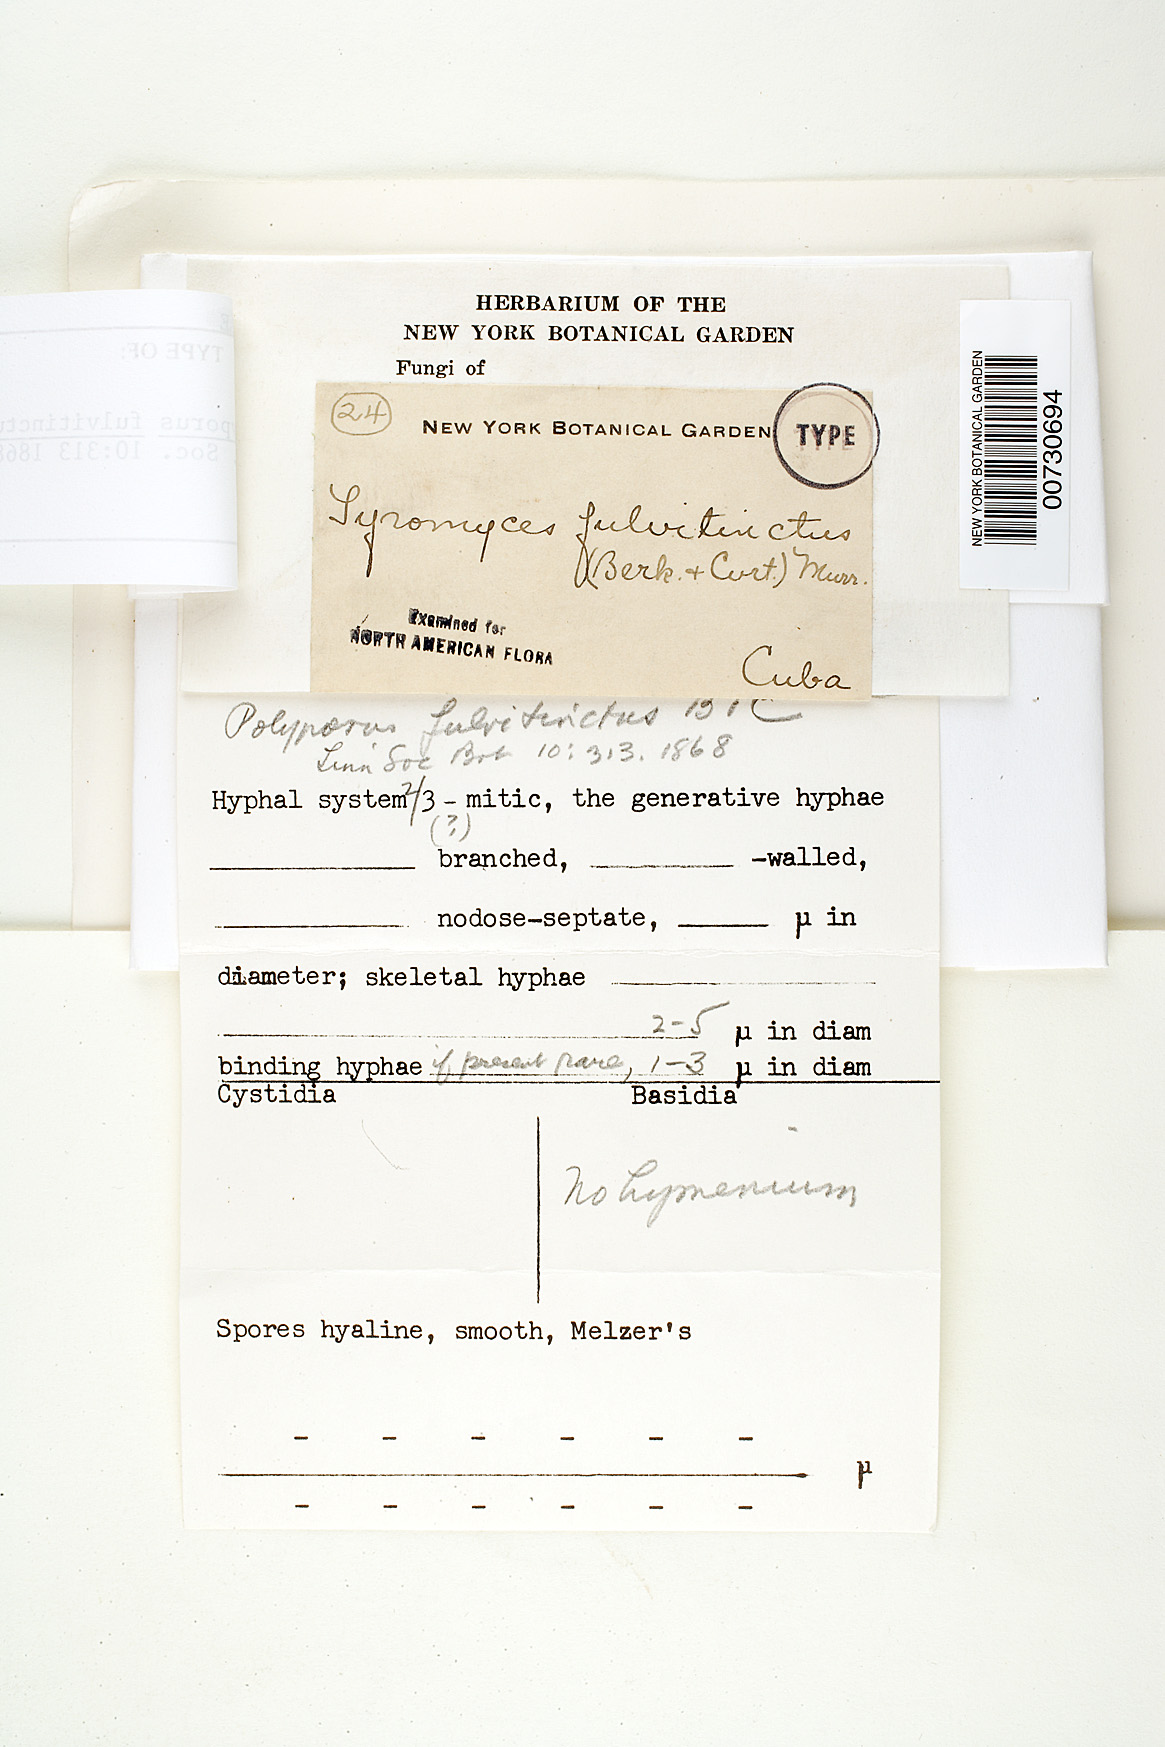 HERBARIUM OF THE
NEW YORK BOTANICAL GARDEN
Fungi of
24
NEW YORK BOTANICAL GARDEN
TYPE
Tyromyces fulvitinctus
(Berk. + Curt.) Murr.
Examined for
NORTH AMERICAN FLORA
Cuba
NEW YORK BOTANICAL GARDEN
00730694
TYPE OF:
porus fulvitinctu
Soc. 10:313 186
Polyporus fulvitinctus B+C
Linn Soc Bot 10: 313. 1868
Hyphal system 2/3 - mitic, the generative hyphae
(?)
branched, -walled,
nodose-septate, µ in
diameter; skeletal hyphae
2-5 µ in diam
binding hyphae if present rare, 1-3 µ in diam
Cystidia Basidia
No hymenium
Spores hyaline, smooth, Melzer's
- - - - - -
µ
- - - - - -